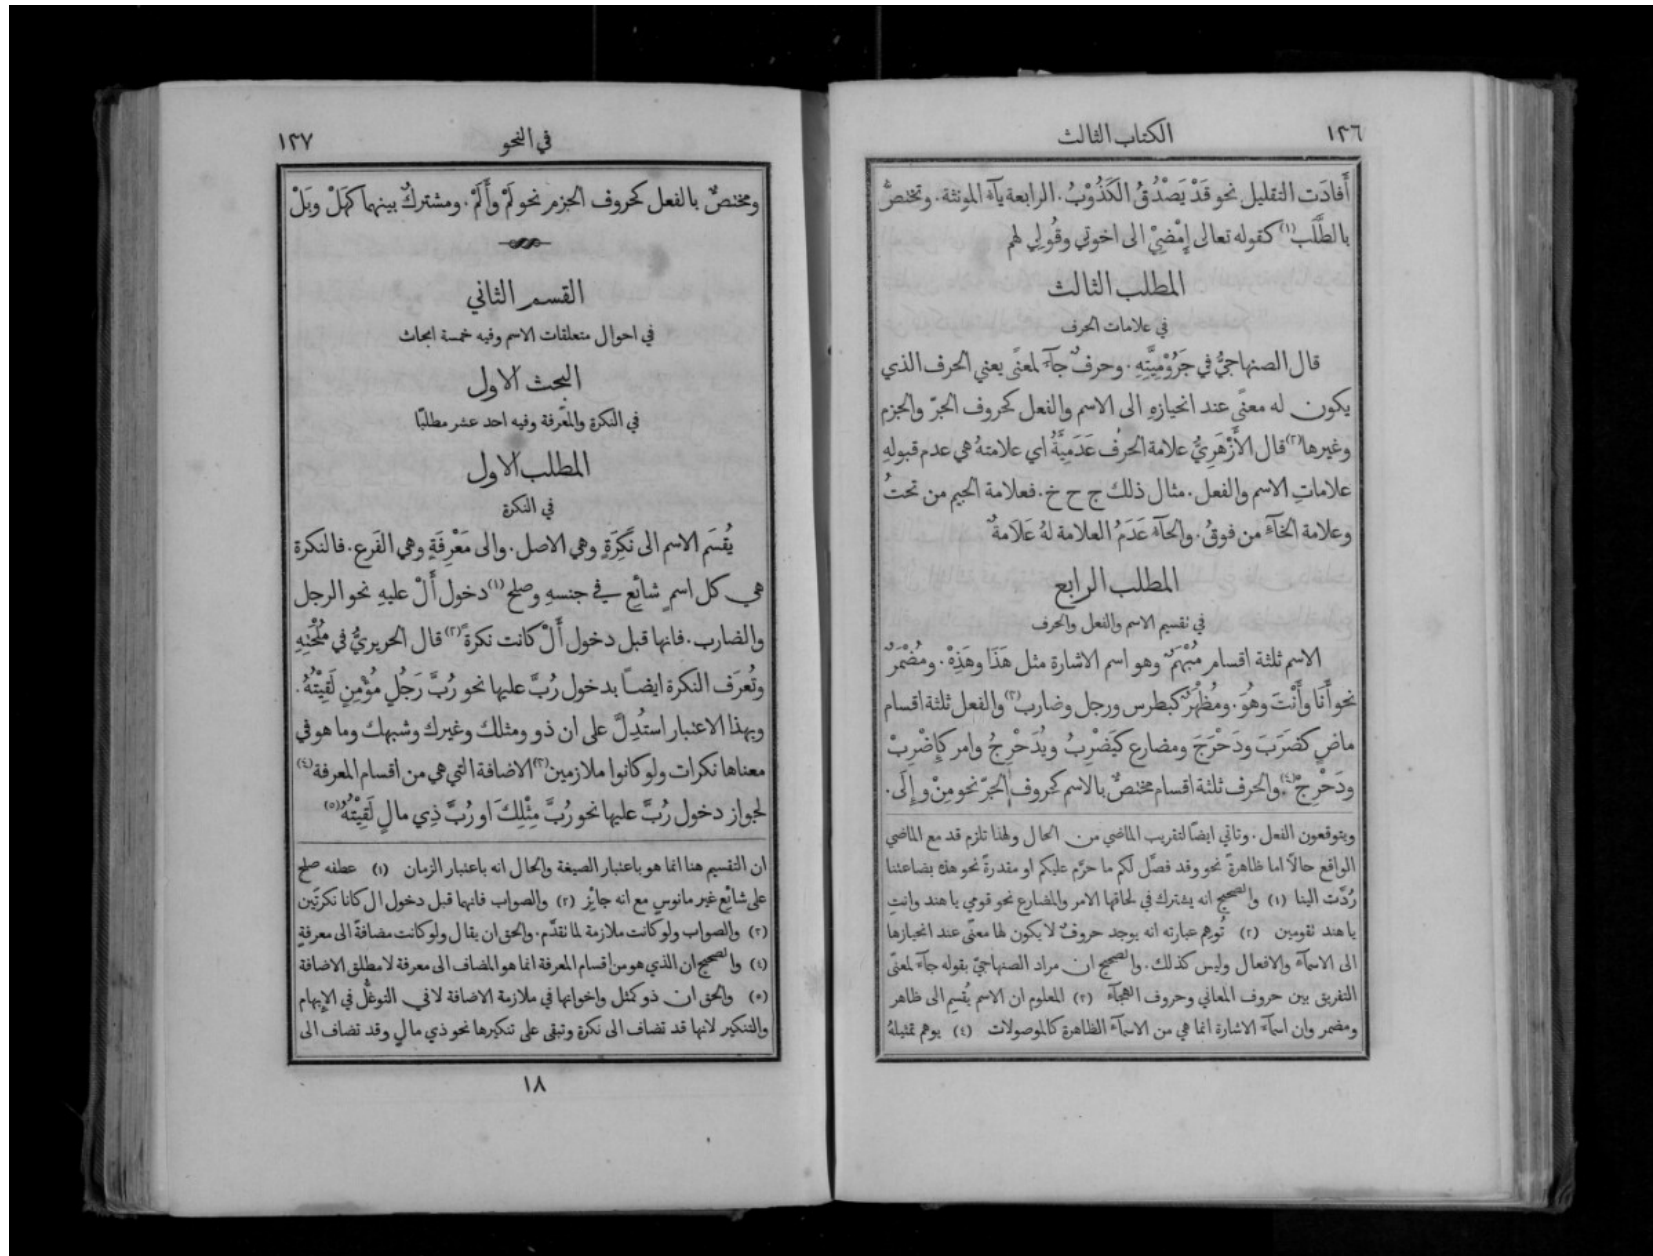 ١٣٦
الكتاب الثالث
أَفادَت التقليل نحو قَدْ يَصْدُقُ الْكَذُوْبُ. الرابعة يآء المونثة. وتختصُّ
بالطَّلَب(١) كقوله تعالى إِمْضِيْ الى اخوتي وقُولِي لهم
المطلب الثالث
في علامات الحرف
قال الصنهاجيُّ في جَرُوْمِيَّتِهِ. وحرفٌ جآءَ لمعنًى يعني الحرف الذي
يكون له معنًى عند انحيازهِ الى الاسم والفعل كحروف الجرّ والجزم
وغيرها(٢) قال الأَزْهَرِيُّ علامة الحرف عَدَمِيَّةٌ اي علامتهُ هي عدم قبولهِ
علاماتِ الاسم والفعل. مثال ذلك ج ح خ. فعلامة الجيم من تحتُ
وعلامة الخآءِ من فوقُ. والحآءُ عَدَمُ العلامة لهُ عَلَامةٌ
المطلب الرابع
في تقسيم الاسم والفعل والحرف
الاسم ثلثة اقسام مُبْهَمٌ وهو اسم الاشارة مثل هَذَا وهَذِهْ. ومُضْمَرٌ
نحو أَنَا وأَنْتَ وهُوَ. ومُظْهَرٌ كبطرس ورجل وضارب(٣) والفعل ثلثة اقسام
ماضٍ كضَرَبَ ودَحْرَجَ ومضارع كيَضْرِبُ ويُدَحْرِجُ وامر كإِضْرِبْ
ودَحْرِجْ(٤). والحرف ثلثة اقسام مختصٌّ بالاسم كحروف الجرّ نحو مِنْ و إِلَى.
ويتوقعون الفعل. وتاتي ايضًا لتقريب الماضي من الحال ولهذا تلزم قد مع الماضي
الواقع حالًا اما ظاهرةً نحو وقد فصَّل لكم ما حرَّم عليكم او مقدرةً نحو هذه بضاعتنا
رُدَّت الينا (١) والصحيح انه يشترك في لحاقها الامر والمضارع نحو قومي يا هند وانتِ
يا هند تقومين (٢) تُوهِم عبارته انه يوجد حروفٌ لا يكون لها معنًى عند انحيازها
الى الاسمآء والافعال وليس كذلك. والصحيح ان مراد الصنهاجيّ بقوله جآءَ لمعنًى
التفريق بين حروف المعاني وحروف الهجآء (٣) المعلوم ان الاسم يُقسَم الى ظاهر
ومضمر وان اسمآء الاشارة انما هي من الاسمآء الظاهرة كالموصولات (٤) يوهم تمثيلهُ
في النحو
١٣٧
ومختصٌّ بالفعل كحروف الجزم نحو لَمْ وأَلَمْ. ومشتركٌ بينهما كهَلْ وبَلْ
القسم الثاني
في احوال متعلقات الاسم وفيه خمسة ابحاث
البحث الاول
في النكرة والمَعْرفة وفيه احد عشر مطلبًا
المطلب الاول
في النكرة
يُقسَم الاسم الى نَكِرَةٍ وهي الاصل. والى مَعْرِفَةٍ وهي الفَرع. فالنكرة
هي كل اسمٍ شائعٍ في جنسهِ وصلح(١) دخول أَلْ عليهِ نحو الرجل
والضارب. فانها قبل دخول أَلْ كانت نكرةً(٢) قال الحريريُّ في مُلْحَتِهِ
وتُعرَف النكرة ايضًا بدخول رُبَّ عليها نحو رُبَّ رَجُلٍ مُؤْمِنٍ لَقِيْتُهُ.
وبهذا الاعتبار استُدِلَّ على ان ذو ومثلك وغيرك وشبهك وما هو في
معناها نكرات ولو كانوا ملازمين(٣) الاضافة التي هي من اقسام المعرفة(٤)
لجواز دخول رُبَّ عليها نحو رُبَّ مِثْلِكَ او رُبَّ ذِي مالٍ لَقِيْتُهُ(٥)
ان التقسيم هنا انما هو باعتبار الصيغة والحال انه باعتبار الزمان (١) عطفه صلح
على شائع غير مانوسٍ مع انه جايز (٢) والصواب فانها قبل دخول ال كانا نكرتَين
(٣) والصواب ولو كانت ملازمة لما تقدَّم. والحق ان يقال ولو كانت مضافةً الى معرفةٍ
(٤) والصحيح ان الذي هو من اقسام المعرفة انما هو المضاف الى معرفة لا مطلق الاضافة
(٥) والحق ان ذو كمثل واخواتها في ملازمة الاضافة لا في التوغُّل في الإبهام
والتنكير لانها قد تضاف الى نكرة وتبقى على تنكيرها نحو ذي مالٍ وقد تضاف الى
١٨